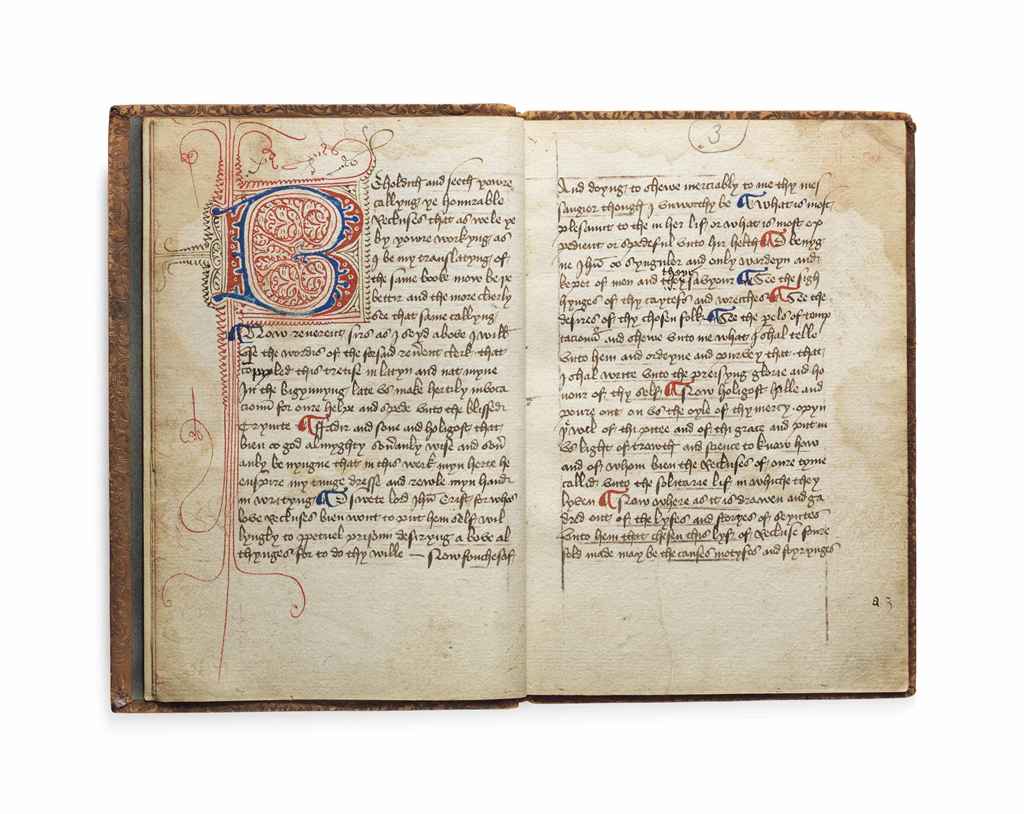 Beholdith and seeth yowre
callyng ye honurable
Recluses that as wele ye
by yowre workyng as
I be my translatyng of
the same booke mowe be ye
bettir and the more clerly
see that same callyng
Now reverent sirs as I seyd above I will
use the wordis of the forsaid reverent clerk that
compyled this tretise in latyn and nat myne
In the bigynnyng late us make hertily invoca
cioun for oure helpe and spede unto the blissed
Trynite ¶ Fadir and sone and holigost that
bien oo god almyghty sovranly wise and sovr
anly benyngne that in this werk myn herte ye
enspire my tunge dresse and rewle myn hand
in writyng ¶ O swete lord Jhu Crist for whos
love Recluses bien wont to putt hem self wil
lyngly to perpetuel prisoun desiryng above al
thynges for to do thy wille — Now fouchesaf
3
And doyng to shewe merciably to me thy mes
saugier though I unworthy be ¶ What is most
plesaunt to the in her lif or what is most ex
pedient or spedeful unto hir helth ¶ O benyg
ne Jhu oo synguler and only wardeyn and
thow
keper of men and savyour ¶ See the sigh
hynges of thy caytefs and wrecches ¶ See the
desires of thy chosen folk ¶ See the perels of temp
tacioun and shewe unto me what I shal telle
unto hem and ordeyne and purvey that that
I shal write unto the preisyng glorie and ho
nour of thy self ¶ Now holigost fulle and
poure out on us the oyle of thy mercy opyn
ye wel of thi pitee and of thi grace and putt in
us light of trowth and science to knowe how
and of whom bien the Recluses of oure tyme
called unto the solitarie lif in whiche they
lyven ¶ Now where as it is drawen and ga
dred out of the lyfes and storyes of seyntes
Unto hem that chesen this lyf of Recluse foure
fold maad may be the causes motyfes and styrynges
a 3